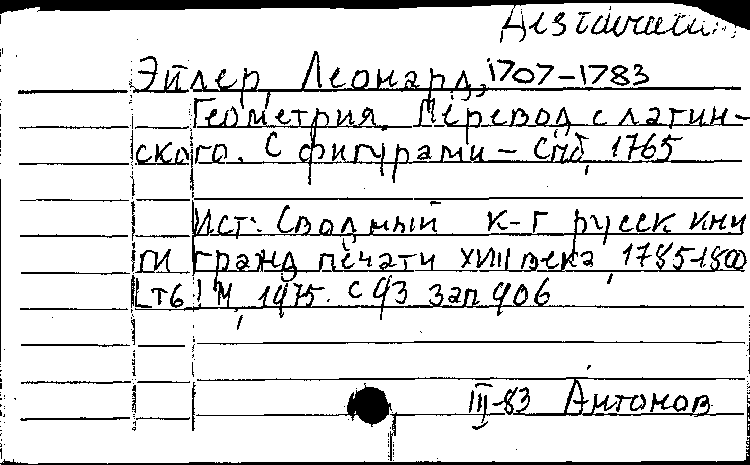 Дезидерата
Эйлер, Леонард, 1707-1783
Геометрия. Перевод с латин-
ского. С фигурами - Спб, 1765
Ист: Сводный к-г русск кни
ги гражд печати XVIII века, 1785-1800
[т6] М, 1975. с 93 Зап 906
III-83 Антонов